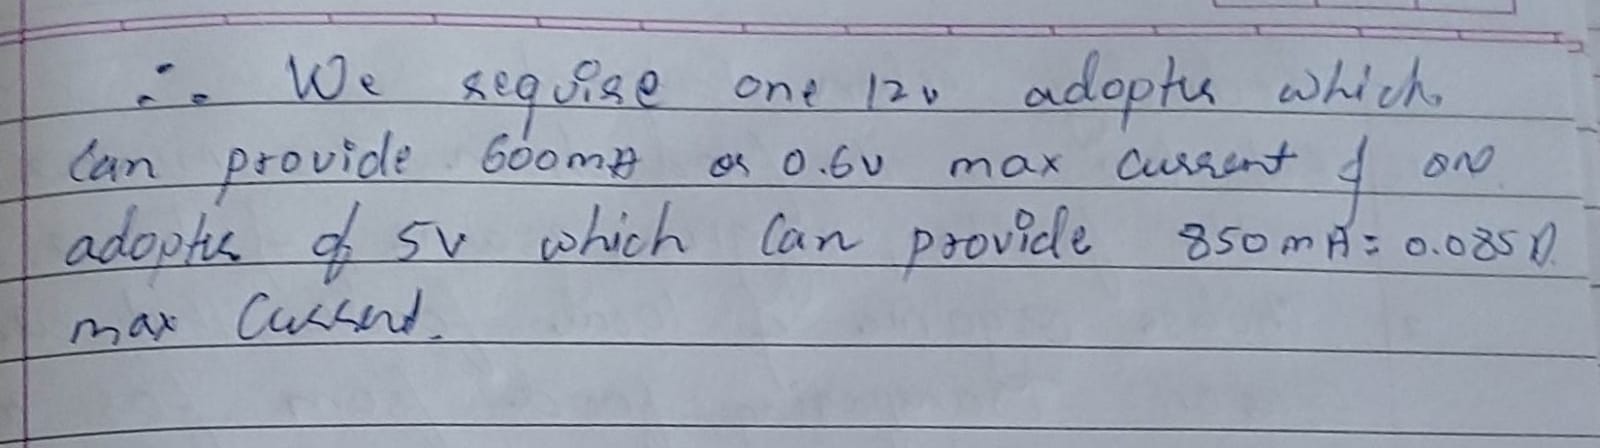 ∴ We require one 12v adopter which
can provide 600mA or 0.6v max current & one
adopter of 5v which can provide 850mA = 0.085A
max current.